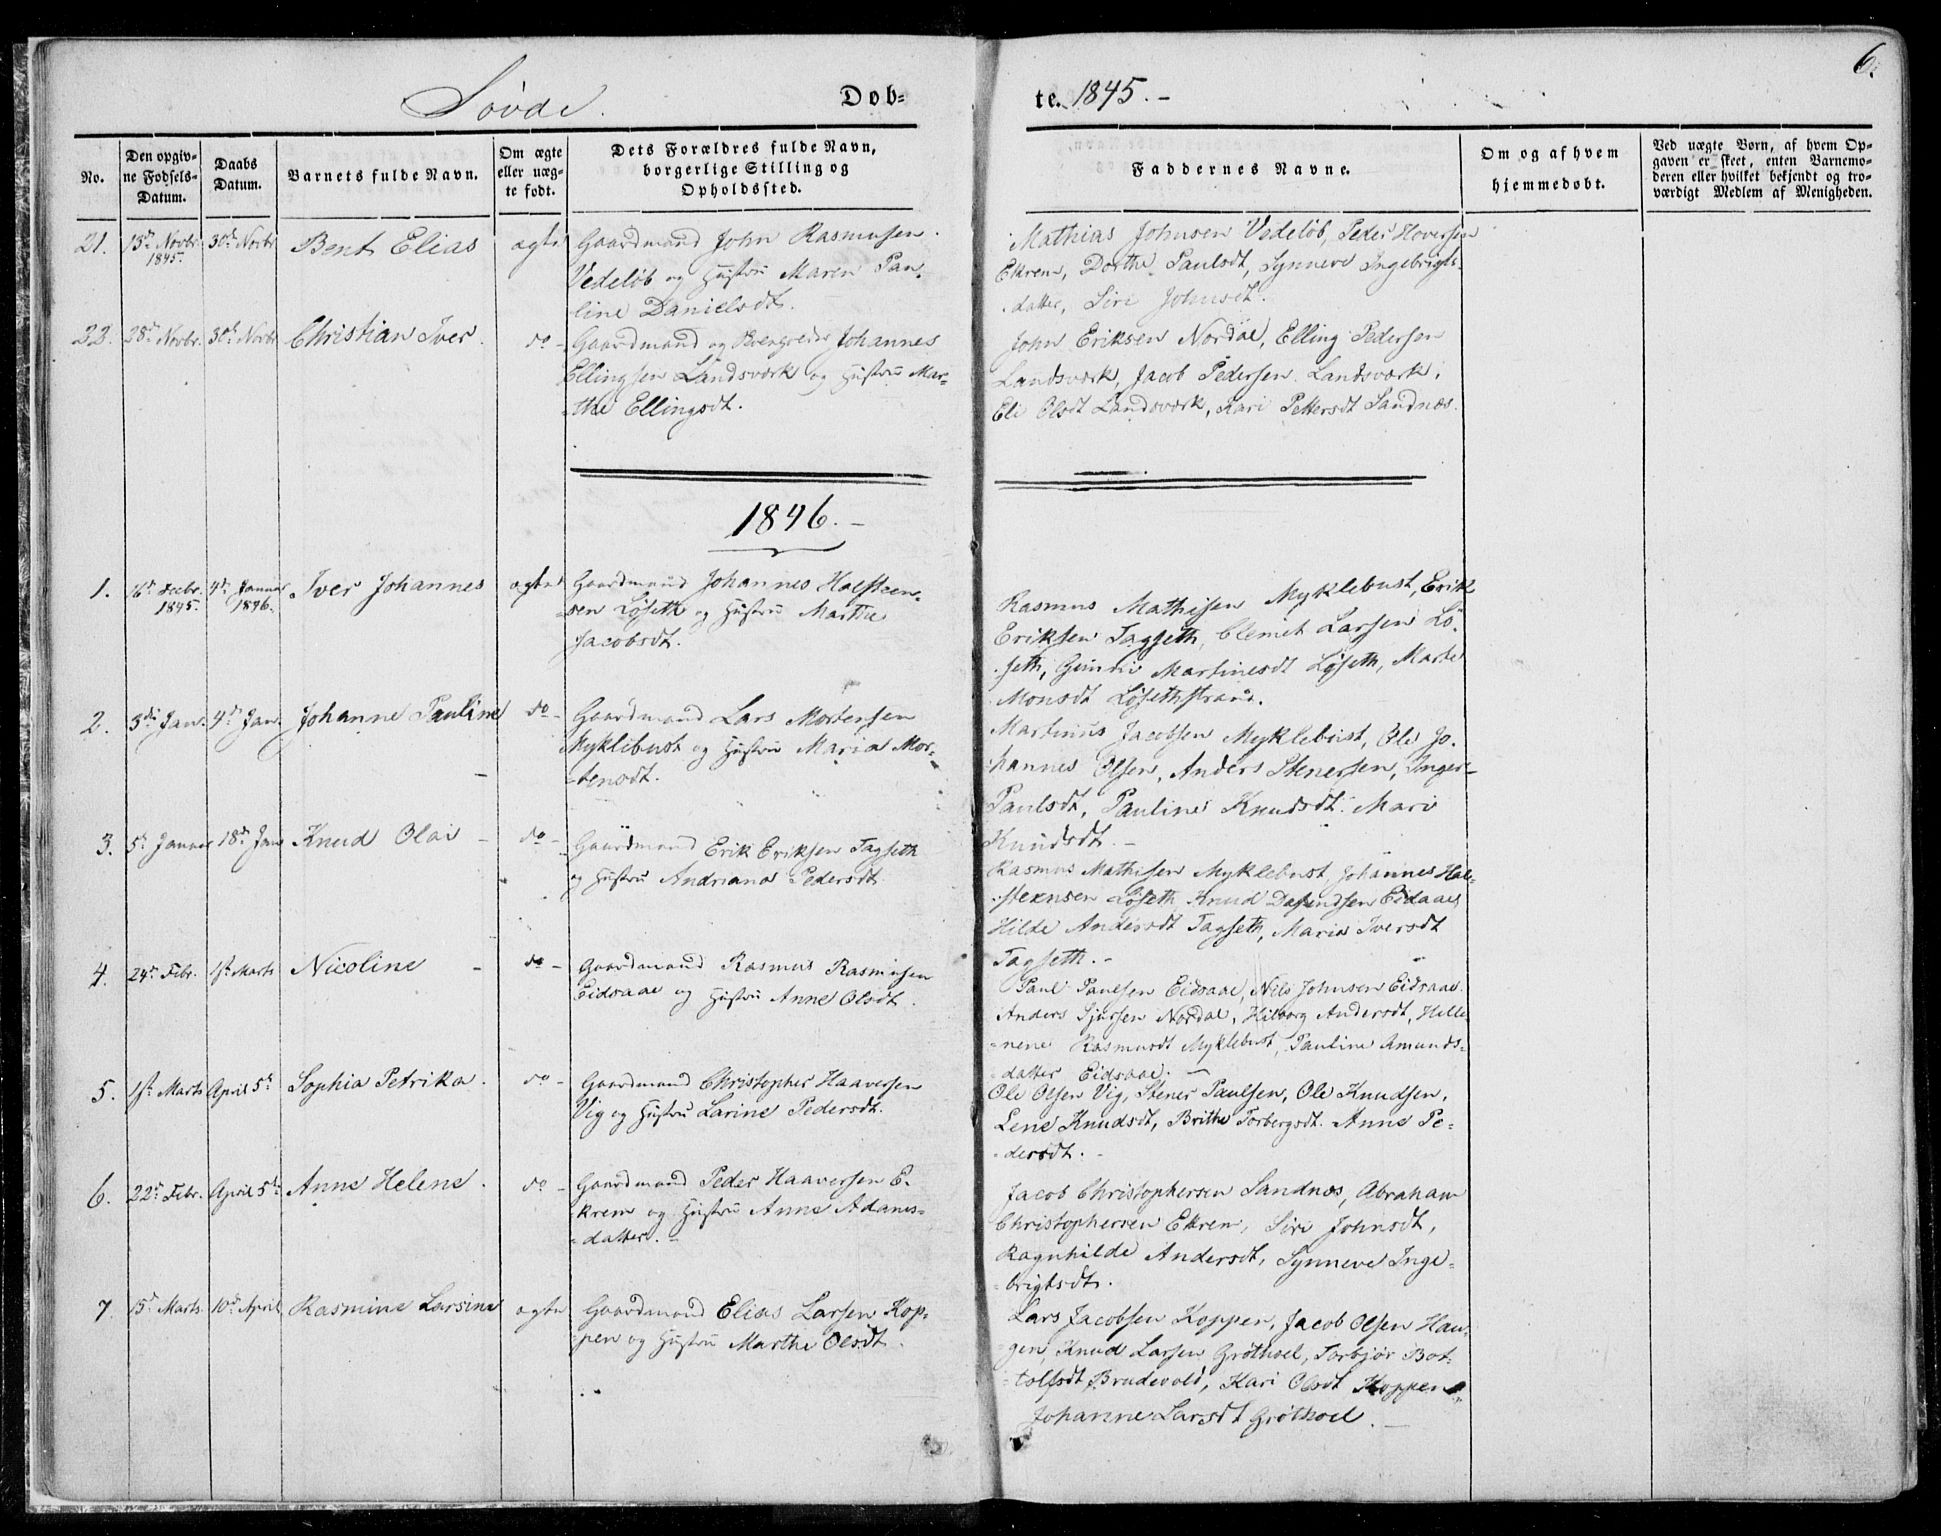 6.
Søvde. Døb= te. 1845. -
No.
Den opgiv=
ne Fødsels=
Datum.
Daabs
Datum.
Barnets fulde Navn.
Om ægte
eller uæg=
te født.
Dets Forældres fulde Navn,
borgerlige Stilling og
Opholdssted.
Faddernes Navne.
Om og af hvem
hjemmedøbt.
Ved uægte Børn, af hvem Op=
gaven er skeet, enten Barnemo=
deren eller hvilket bekjendt og tro=
værdigt Medlem af Menigheden.
21. 13de Novbr. 1845. 30te Novbr Bent Elias ægte
Gaardmand John Rasmusen
Vedeløb og Hustru Maren Pau-
line Danielsdt.
Mathias Johnsen Vedeløb, Peder Hoversen
Ekrem, Dorthe Paulsdt, Synneve Ingebrigts-
datter, Siri Johnsdt.
22. 28de Novbr. 30te Novbr Christian Iver. do -
Gaardmand og Johannes
Ellingsen Landsværk og Hustru Mar-
the Ellingsdt.
John Eriksen Nordal, Elling Pedersen
Landsværk, Jacob Pedersen Landsværk,
Eli Olsdt Landsværk, Kari Pettersdt Sandnæs.
1846. -
1. 16de Decbr. 1845. 4de Januar 1846. Iver Johannes ægte
Gaardmand Johannes Halsteen-
sen Løseth og Hustru Marthe
Jacobsdt.
Rasmus Mathisen Myklebust, Erik
Eriksen Tagseth, Clemet Larsen Lø-
seth, Martinesdt Løseth, Marte
Monsdt Løsethstrand.
2. 3die Jan. 4de Jan. Johanne Pauline do -
Gaardmand Lars Mortensen
Myklebust og Hustru Maria Mor-
tensdt.
Martinus Jacobsen Myklebust, Ole Jo-
hannes Olsen, Anders Stenersen, Inger
Paulsdt, Pauline Knudsdt. Mari
Knudsdt. -
3. 5te Januar 18de Jan Knud Olai - do -
Gaardmand Erik Eriksen Tagseth
og Hustru Andriana Pedersdt.
Rasmus Mathisen Myklebust, Johannes Hal-
steensen Løseth Knud Eidsaae,
Hilde Andersdt Tagseth, Maria Iversdt
Tagseth. -
4. 24de Febr. 1ste Marts Nicoline - do -
Gaardmand Rasmus Rasmusen
Eidsaae og Hustru Anne Olsdt.
Paul Paulsen Eidsaae, Nils Johnsen Eidsaae.
Anders Sjursen Nordal, Hilborg Andersdt, Helle-
nene Rasmusdt Myklebust, Pauline Amunds-
datter Eidsaae. -
5. 1ste Marts April 5te Sophia Petrika. do -
Gaardmand Christopher Haaversen
Vig og Hustru Larine Pedersdt.
Ole Olsen Vig, Stener Paulsen, Ole Knudsen,
Lene Knudsdt, Brithe Torbergsdt. Anne Pe-
dersdt. -
6. 22de Febr. April 5te Anne Helene. do -
Gaardmand Peder Haaversen E-
krem og Hustru Anne Adams-
datter. -
Jacob Christophersen Sandnæs, Abraham
Christophersen Ekrem, Siri Johnsdt,
Ragnhilde Andersdt, Synneve Inge-
brigtsdt.
7 15de Marts. 10de April Rasmine Larsine ægte
Gaardmand Elias Larsen Kop-
pen og Hustru Marthe Olsdt.
Lars Jacobsen Koppen, Jacob Olsen Hau-
gen, Knud Larsen Grøthoel, Torbjør Bot-
tolfsdt Brudevold, Kari Olsdt Koppen,
Johanne Larsdt Grøthoel. -